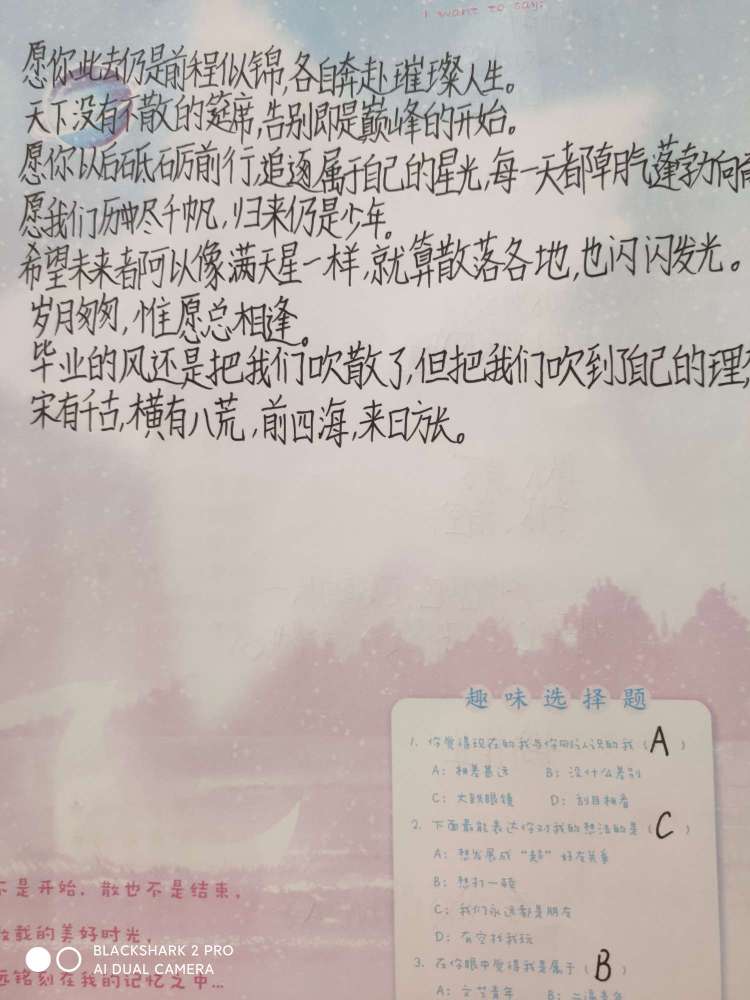 I want to say:
愿你此去仍是前程似锦,各自奔赴璀璨人生。
天下没有不散的筵席,告别即是巅峰的开始。
愿你以后砥砺前行,追逐属于自己的星光,每一天都朝气蓬勃向
愿我们历尽千帆,归来仍是少年。
希望未来都可以像满天星一样,就算散落各地,也闪闪发光。
岁月匆匆,惟愿总相逢。
毕业的风还是把我们吹散了,但把我们吹到了自己的理
宋有千古,横有八荒,前四海,来日方长。
趣味选择题
1. 你觉得现在的我与你刚认识的我(A)
A: 相差甚远 B: 没什么差别
C: 大跌眼镜 D: 刮目相看
2. 下面最能表达你对我的想法的是(C)
A: 想发展成“超”好友关系
B: 想打一顿
C: 我们永远都是朋友
D: 有空找我玩
3. 在你眼中觉得我是属于(B)
A: 文艺青年 B:
不是开始, 散也不是结束,
载的美好时光,
铭刻在我的记忆之中...
BLACKSHARK 2 PRO
AI DUAL CAMERA